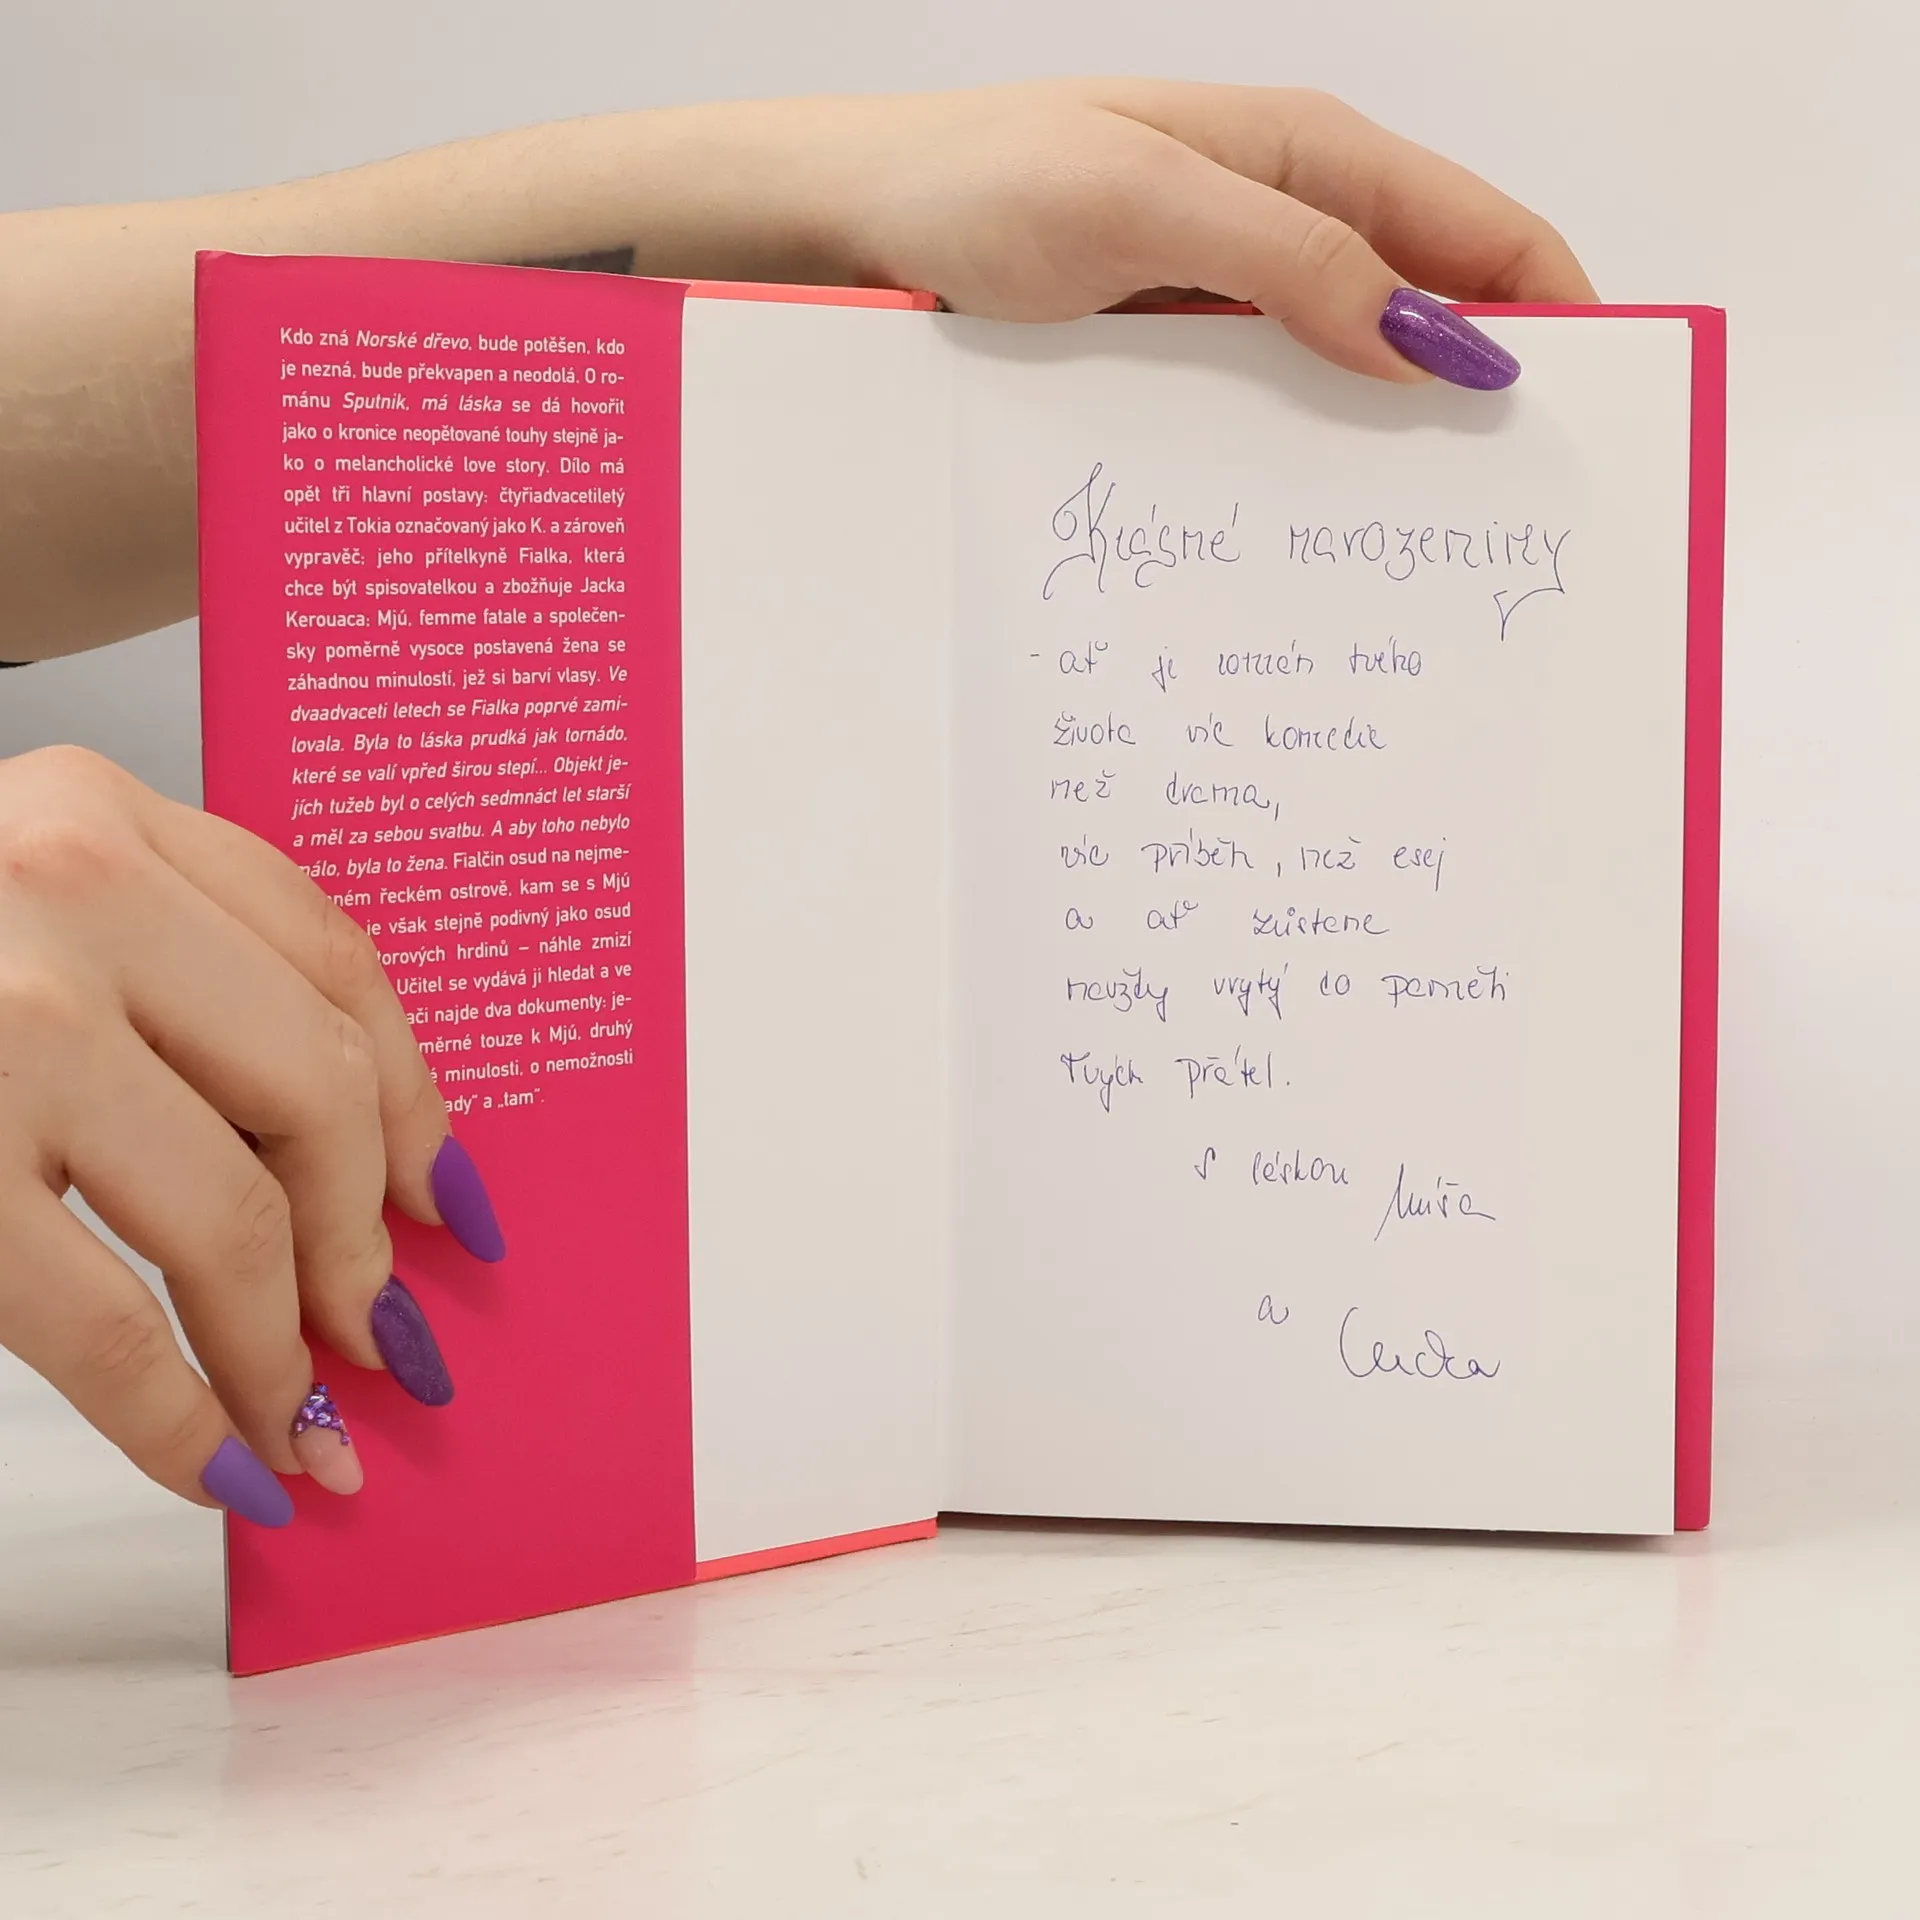 Kdo zná Norské dřevo, bude potěšen, kdo
je nezná, bude překvapen a neodolá. O ro-
mánu Sputnik, má láska se dá hovořit
jako o kronice neopětované touhy stejně ja-
ko o melancholické love story. Dílo má
opět tři hlavní postavy: čtyřiadvacetiletý
učitel z Tokia označovaný jako K. a zároveň
vypravěč; jeho přítelkyně Fialka, která
chce být spisovatelkou a zbožňuje Jacka
Kerouaca; Mjú, femme fatale a společen-
sky poměrně vysoce postavená žena se
záhadnou minulostí, jež si barví vlasy. Ve
dvaadvaceti letech se Fialka poprvé zami-
lovala. Byla to láska prudká jak tornádo,
které se valí vpřed širou stepí... Objekt je-
jích tužeb byl o celých sedmnáct let starší
a měl za sebou svatbu. A aby toho nebylo
málo, byla to žena. Fialčin osud na nejme-
ném řeckém ostrově, kam se s Mjú
je však stejně podivný jako osud
torových hrdinů – náhle zmizí
Učitel se vydává ji hledat a ve
ači najde dva dokumenty: je-
měrné touze k Mjú, druhý
é minulosti, o nemožnosti
ady" a „tam".
Krásné narozeniny
- ať je román tvého
života víc komedie
než drama,
víc příběh, než esej
a ať zůstane
navždy vrytý do paměti
Tvých přátel.
S láskou Míša
a Lucka